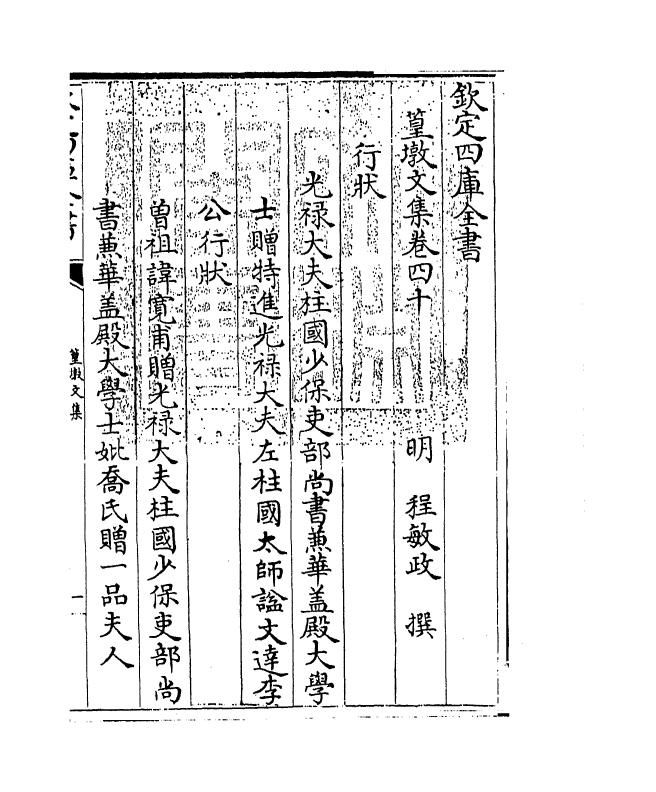 欽定四庫全書
篁墩文集卷四十
明 程敏政 撰
行狀
光禄大夫柱國少保吏部尚書兼華盖殿大學
士贈特進光禄大夫左柱國太師諡文達李
公行狀
曾祖諱寛甫贈光禄大夫柱國少保吏部尚
書兼華盖殿大學士妣喬氏贈一品夫人
篁墩文集
一